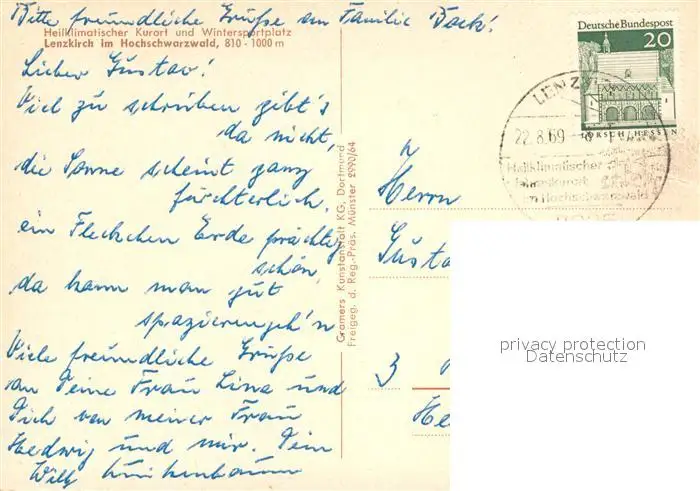 Bitte freundliche Grüße an Familie Bock!
Heilklimatischer Kurort und Wintersportplatz
Lenzkirch im Hochschwarzwald, 810 - 1000 m
Lieber Gustav!
Viel zu schreiben gibt's
da nicht,
die Sonne scheint ganz
fürchterlich,
ein Fleckchen Erde prächtig
schön,
da kann man gut
spazierengeh'n
Viele freundliche Grüße
an Deine Frau Lina und
Dich von meiner Frau
Hedwig und mir. Dein
Willy
Gramers Kunstanstalt KG, Dortmund
Freigeg. d. Reg.-Präs. Münster 2990/64
Deutsche Bundespost
20
LORSCH/HESSEN
LENZ
22.8.69
Heilklimatischer
im Hochschwarzwald
Herrn
Gusta
3
He
privacy protection
Datenschutz